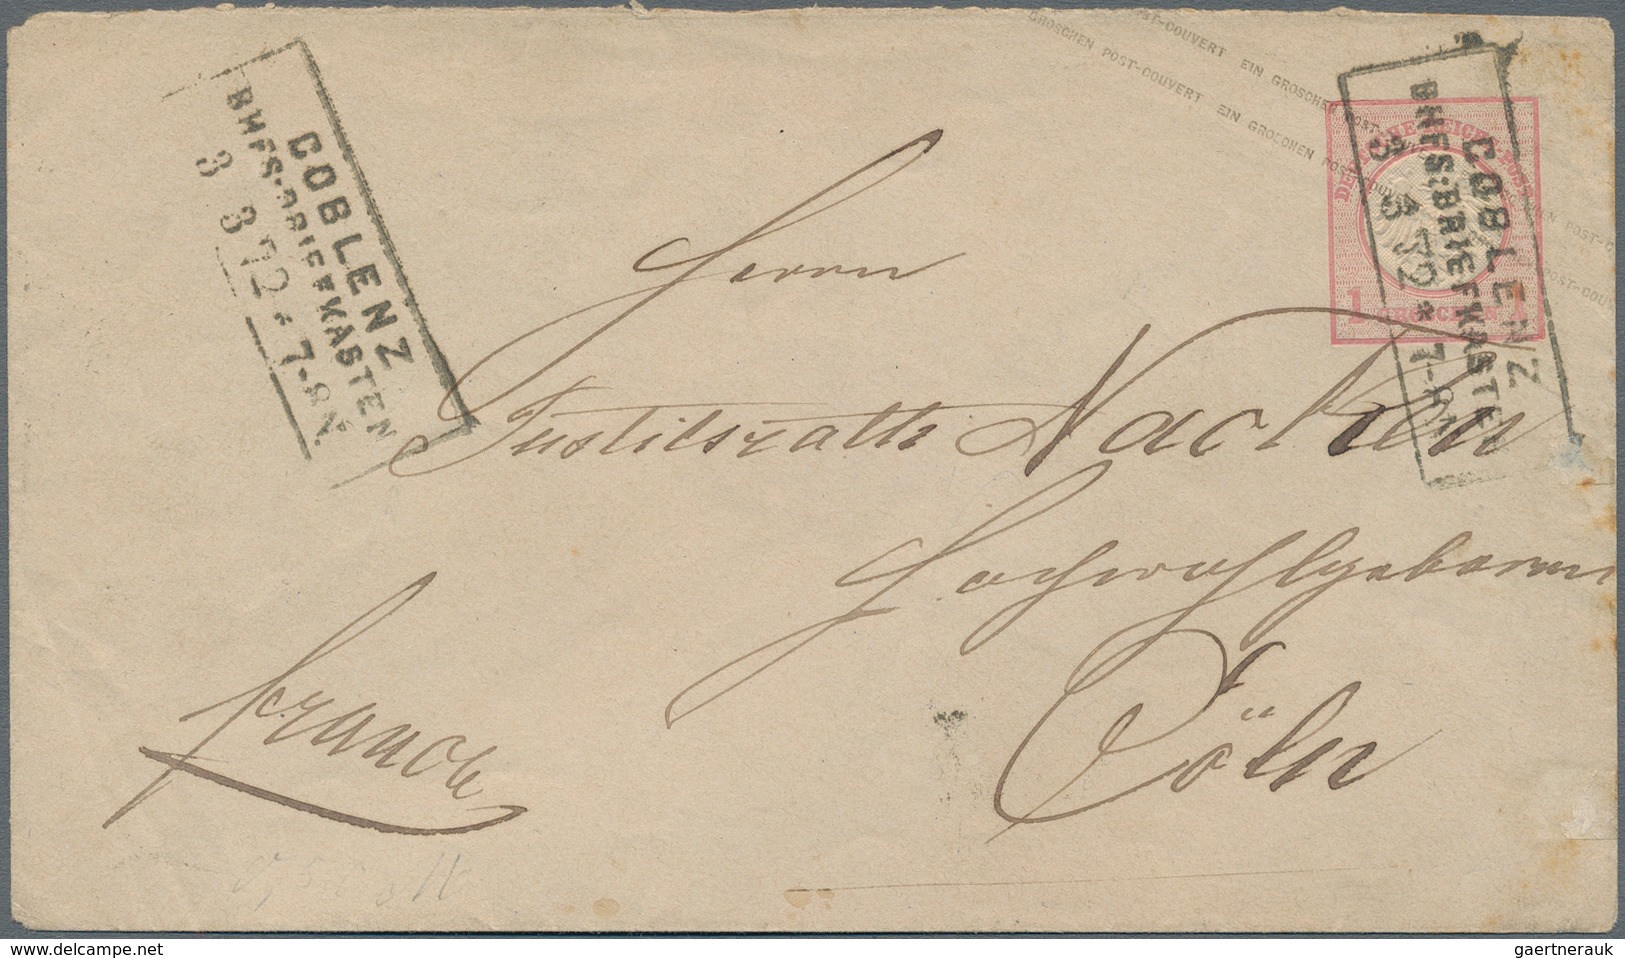 COBLENZ
BHFS.BRIEFKASTEN
3 3 72 * 7-8N.
POST-COUVERT EIN GROSCHEN POST-
GROSCHEN POST-COUVERT EIN GROSCHEN POST-COUVERT
DEUTSCHE REICHS-POST
1 GROSCHEN 1
COBLENZ
BHFS:BRIEFKASTEN
3 3 72 * 7-8N
Herrn
Justitsrath Nacken
Hochwohlgeboren
Cöln
franco
www.delcampe.net
gaertnerauk